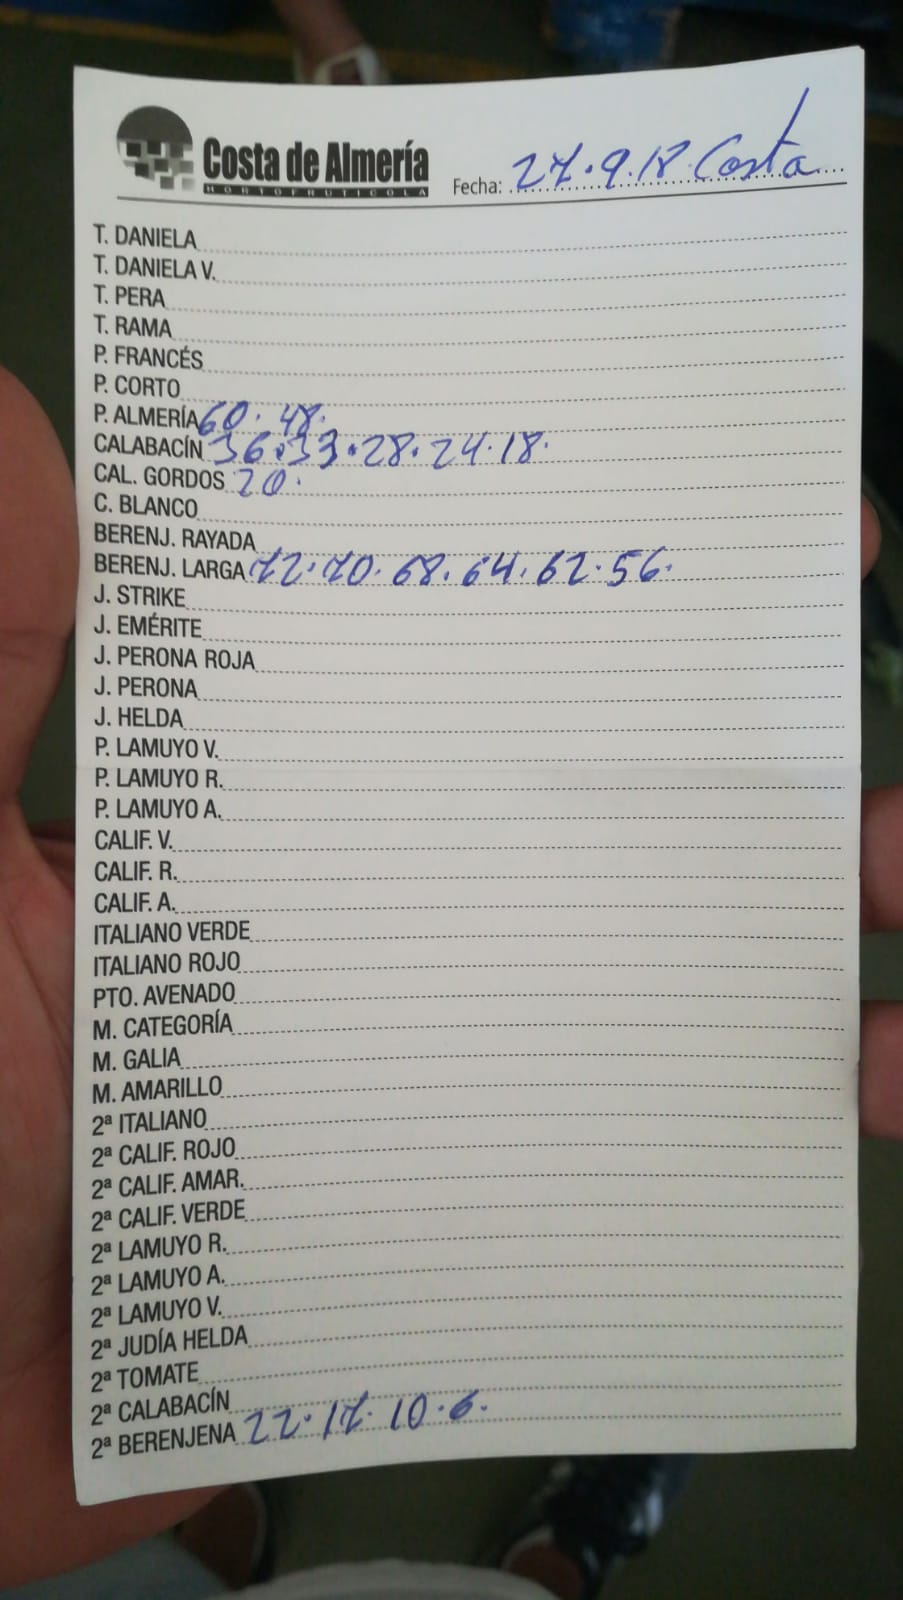 Costa de Almería
HORTOFRUTICOLA
Fecha: 27.9.18 Costa
T. DANIELA
T. DANIELA V.
T. PERA
T. RAMA
P. FRANCÉS
P. CORTO
P. ALMERÍA 60. 48.
CALABACÍN 36.33.28.24.18.
CAL. GORDOS 20.
C. BLANCO
BERENJ. RAYADA
BERENJ. LARGA 72.70.68.64.62.56.
J. STRIKE
J. EMÉRITE
J. PERONA ROJA
J. PERONA
J. HELDA
P. LAMUYO V.
P. LAMUYO R.
P. LAMUYO A.
CALIF. V.
CALIF. R.
CALIF. A.
ITALIANO VERDE
ITALIANO ROJO
PTO. AVENADO
M. CATEGORÍA
M. GALIA
M. AMARILLO
2ª ITALIANO
2ª CALIF. ROJO
2ª CALIF. AMAR.
2ª CALIF. VERDE
2ª LAMUYO R.
2ª LAMUYO A.
2ª LAMUYO V.
2ª JUDÍA HELDA
2ª TOMATE
2ª CALABACÍN
2ª BERENJENA 22.17.10.6.